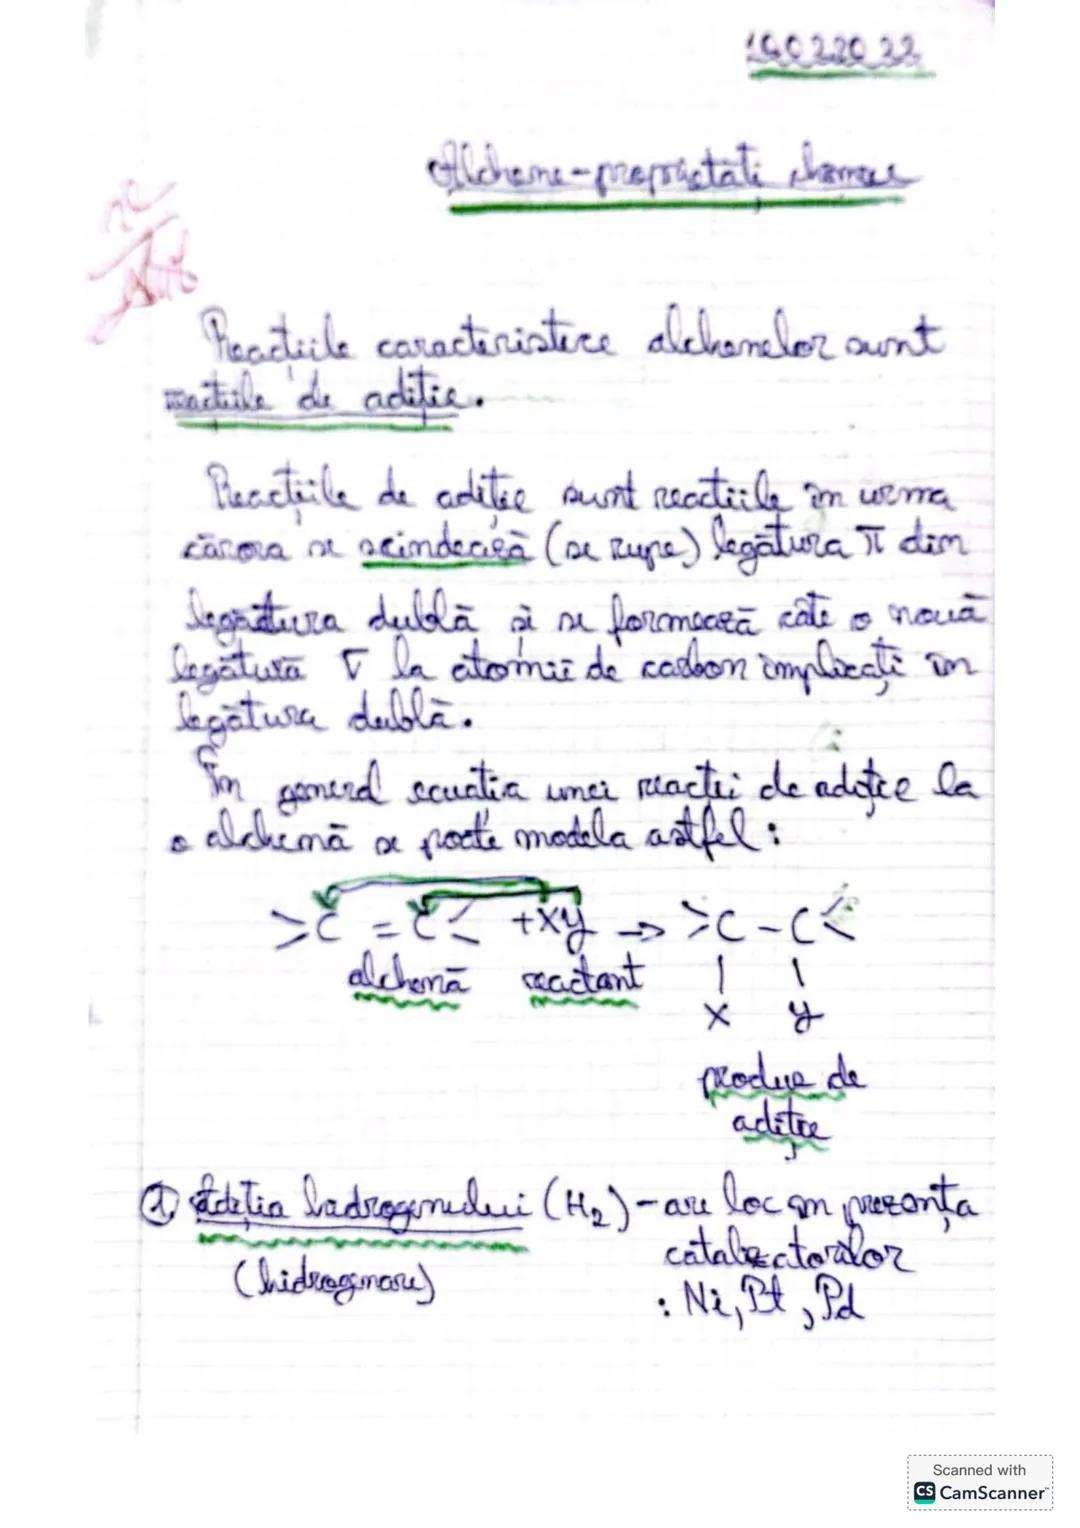 Alchene-proprietăți chimice
Reacțiile caracteristice alchenelor sunt
reacțiile de adiție.
Reacțiile de adiție sunt reacțiile în urma
cărora se scindează (se rupe) legătura π din
legătura dublă și se formează câte o nouă
legătură σ la atomii de carbon implicați în
legătura dublă.
În general ecuația unei reacții de adiție la
o alchenă se poate modela astfel:
>C = C< +xy → >C - C<
alchenă reactant | |
x y
produs de
adiție
① Adiția hidrogenului (H₂) - are loc în prezența
catalizatorilor
(hidrogenare)
: Ni, Pt, Pd
Scanned with
CS CamScanner